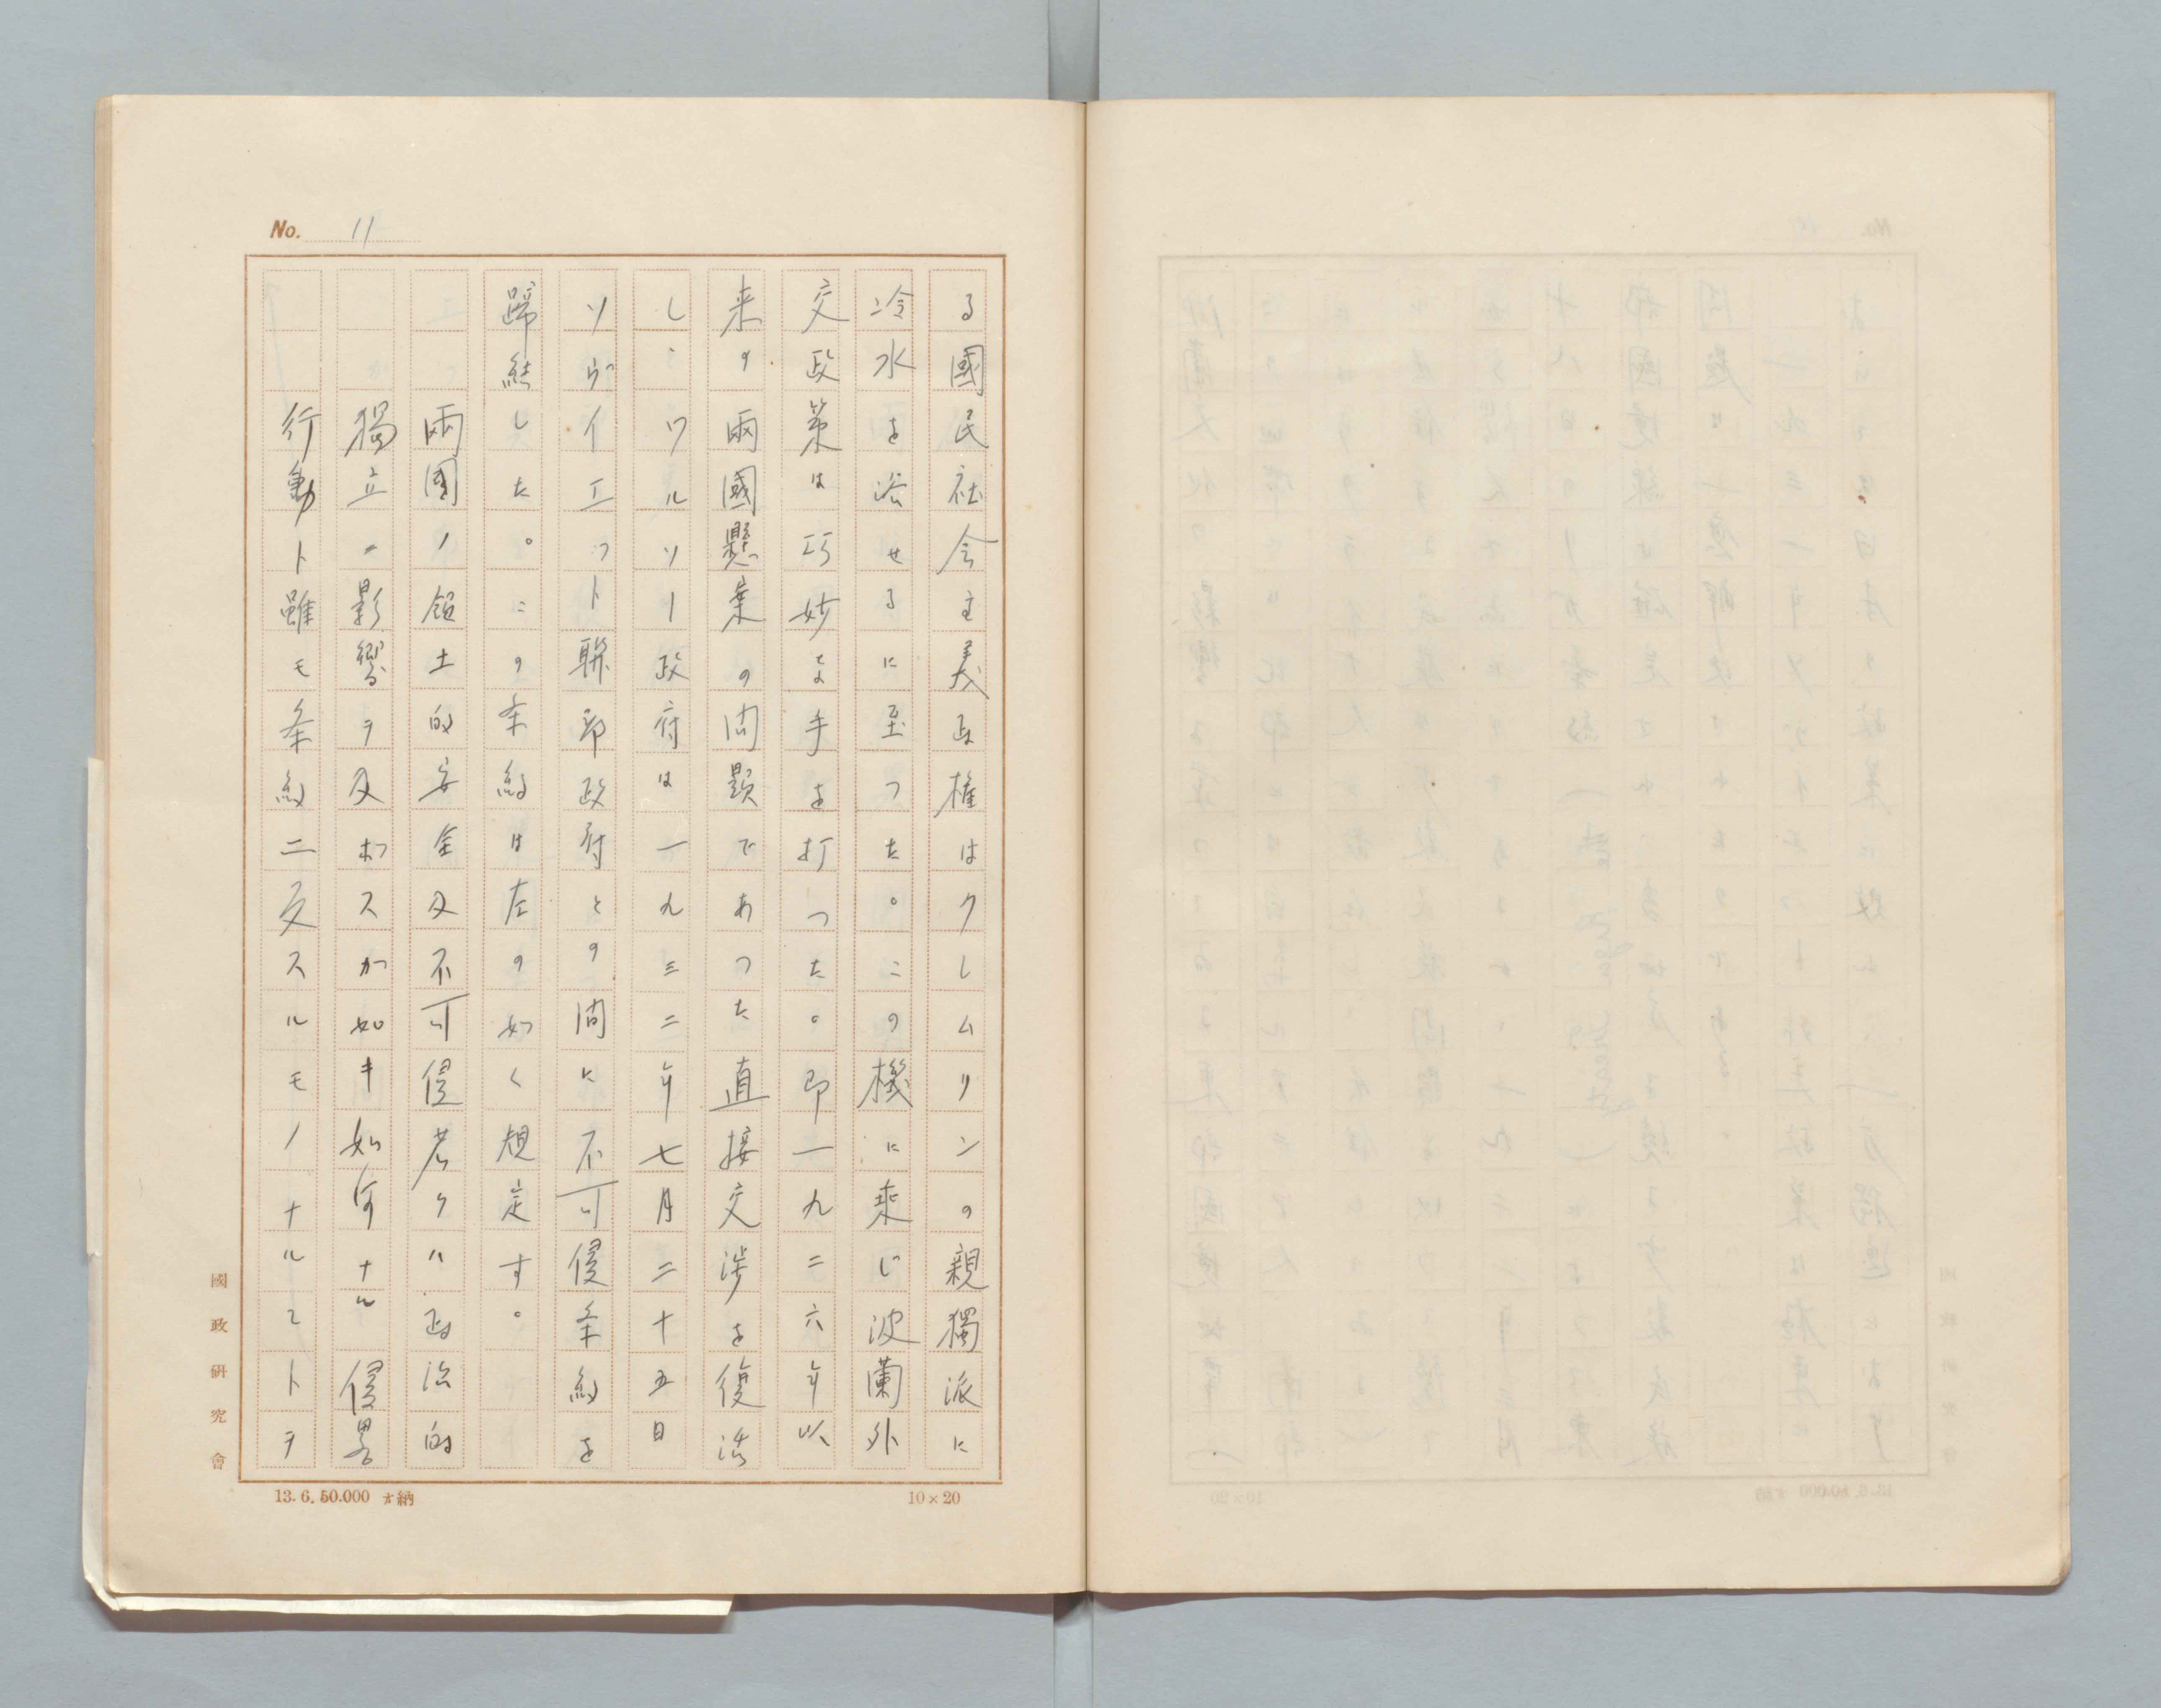 No. 11
る國民社会主義政権はクレムリンの親獨派に
冷水を浴せるに至つた。この機に乗じ波蘭外
交政策は巧妙な手を打つた。即一九二六年以
来の兩國懸案の問題であつた直接交渉を復活
し、ワルソー政府は一九三二年七月二十五日
ソヴイエツト聯邦政府との間に不可侵条約を
蹄結した。この条約は左の如く規定す。
兩國ノ領土的安全及不可侵若クハ政治的
獨立ニ影響ヲ及ホスカ如キ如何ナル侵畧
行動ト雖モ条約ニ反スルモノナルコトヲ
國政研究會
13.6.50.000 才納
10×20